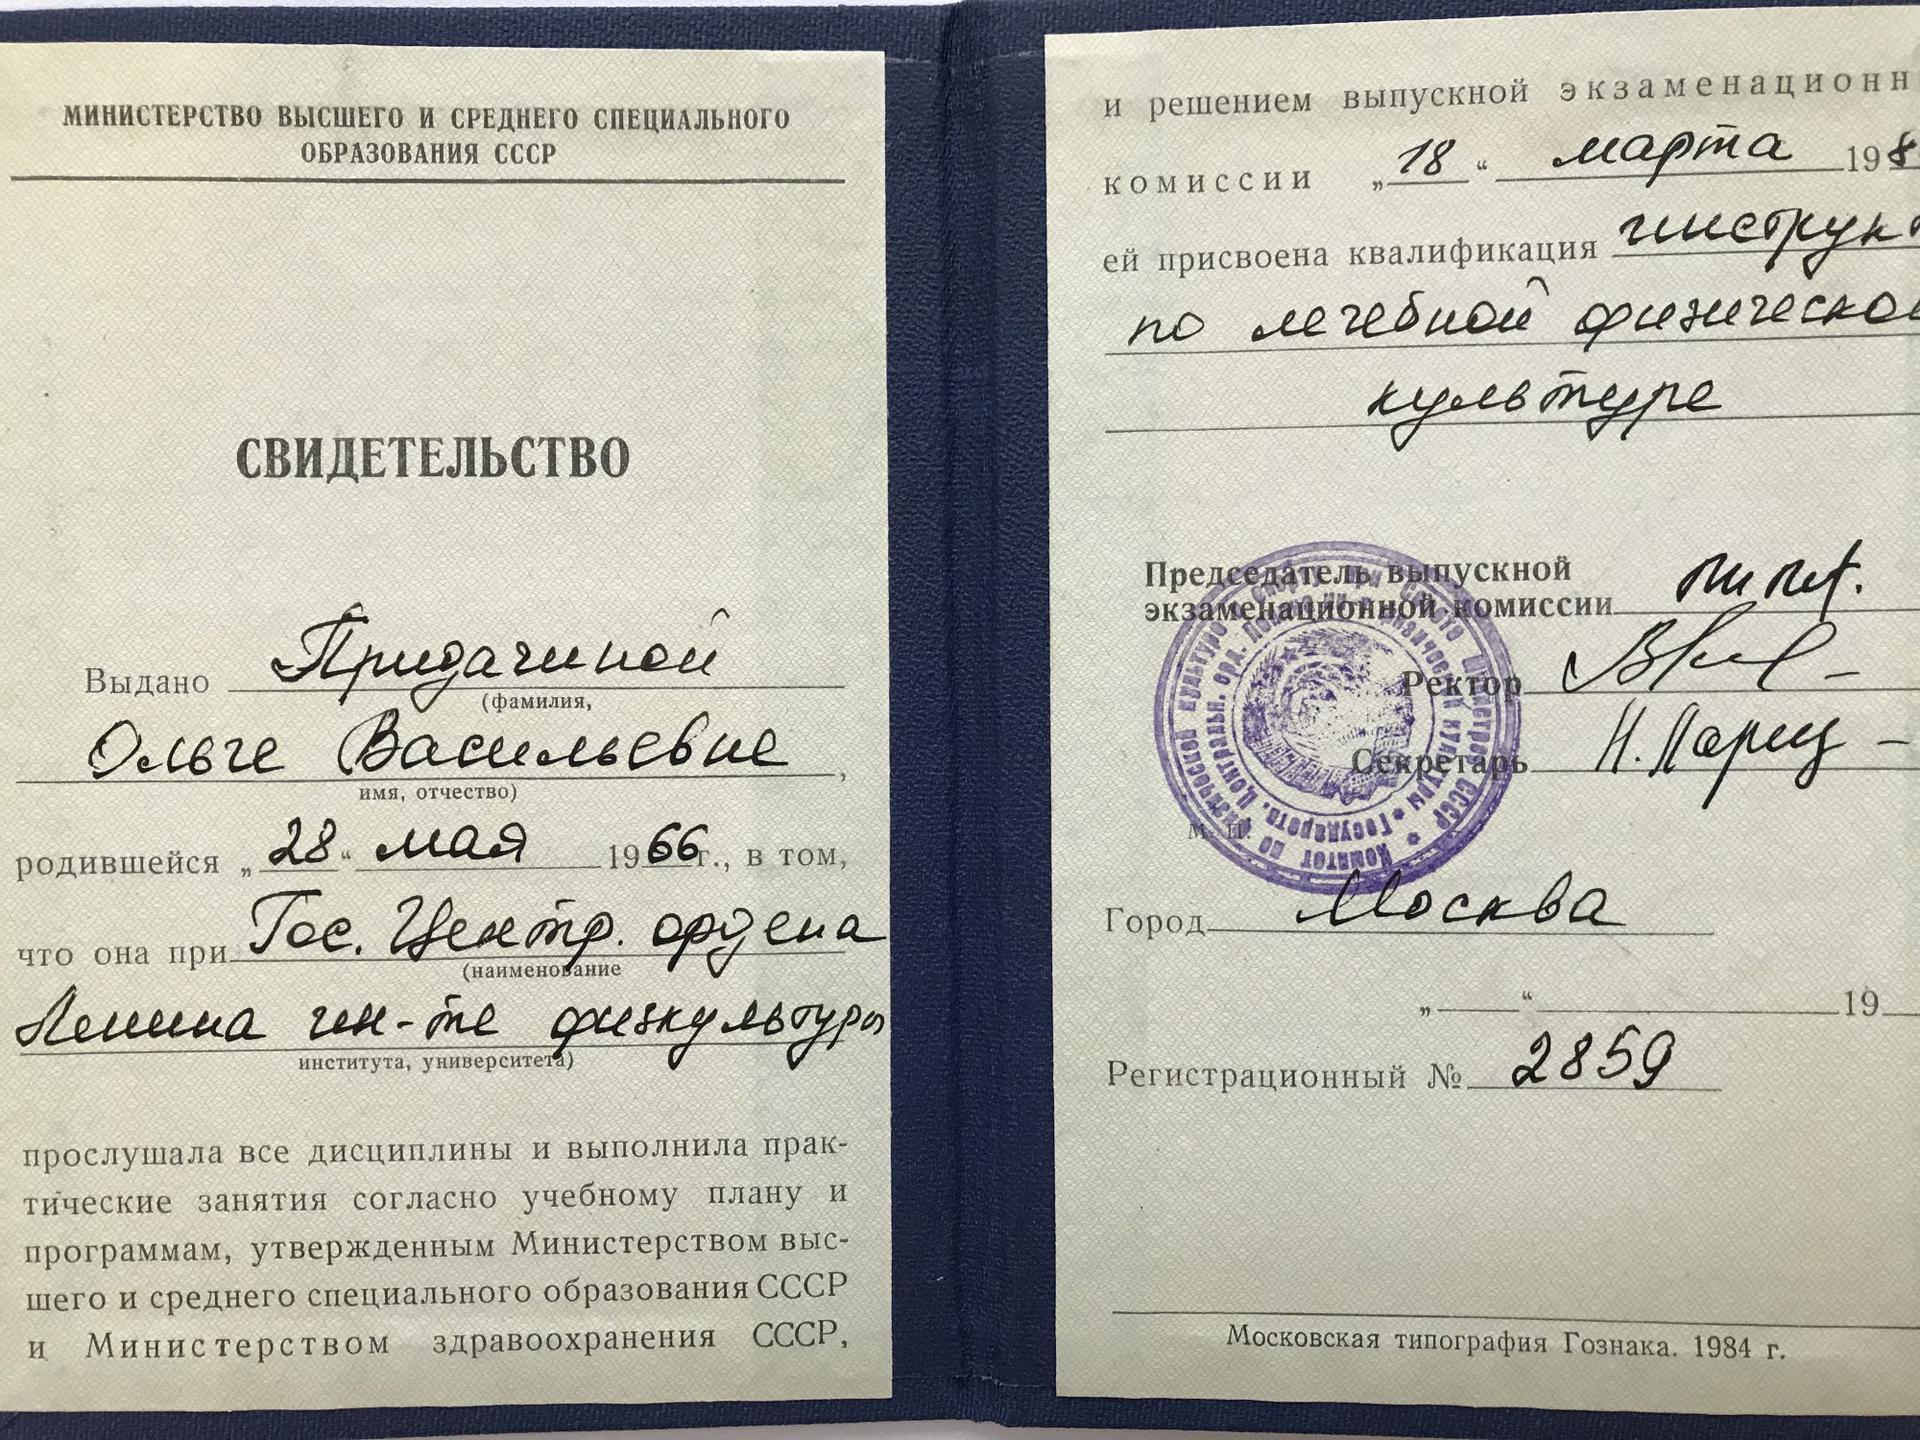 МИНИСТЕРСТВО ВЫСШЕГО И СРЕДНЕГО СПЕЦИАЛЬНОГО
ОБРАЗОВАНИЯ СССР
СВИДЕТЕЛЬСТВО
Выдано Придачиной
(фамилия,
Ольге Васильевне,
имя, отчество)
родившейся „28“ мая 1966г., в том,
что она при Гос. Центр. ордена
(наименование
Ленина ин-те физкультуры
института, университета)
прослушала все дисциплины и выполнила прак-
тические занятия согласно учебному плану и
программам, утвержденным Министерством выс-
шего и среднего специального образования СССР
и Министерством здравоохранения СССР,
и решением выпускной экзаменационн
комиссии „18“ марта 198
ей присвоена квалификация инструкт
по лечебной физической
культуре
Председатель выпускной
экзаменационной комиссии
Ректор
Секретарь
М. П.
Город Москва
„ “ 19
Регистрационный № 2859
Московская типография Гознака. 1984 г.